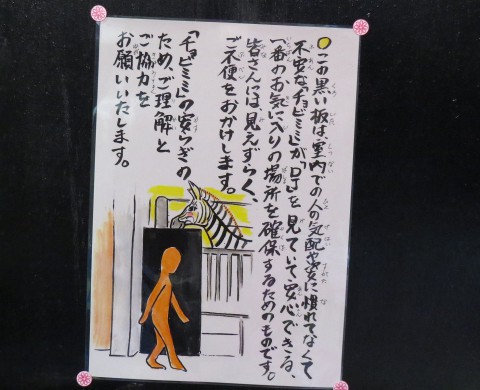 ○この黒い板は、室内での人の気配や姿に慣れてなくて
不安な「チョビミミ」が「ロブ」を見ていて安心できる、
一番のお気に入りの場所を確保するためのものです。
皆さんには、見えずらく、
ご不便をおかけします。
「チョビミミ」の安らぎの
ため、ご理解と
ご協力を
お願いいたします。